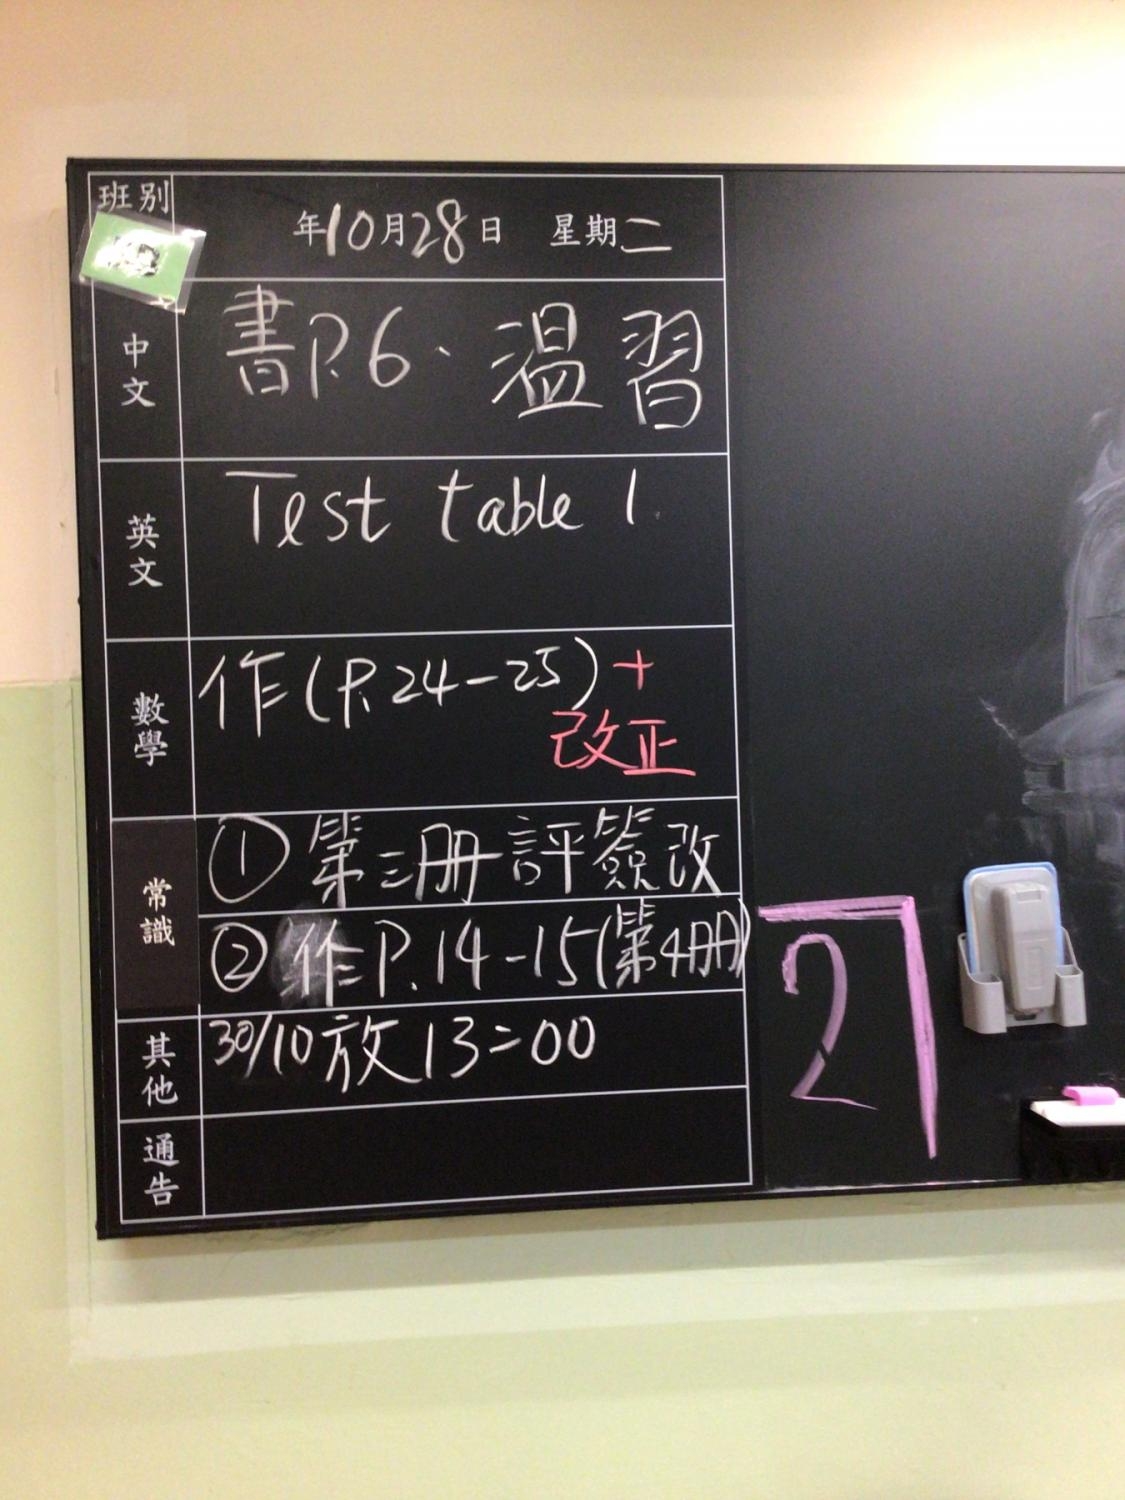 班別
年10月28日 星期二
中文
書P.6、溫習
英文
Test table 1
數學
作(P.24-25)+
改正
常識
① 第三冊評簽改
② 作P.14-15(第4冊)
其他
30/10放13:00
通告
27